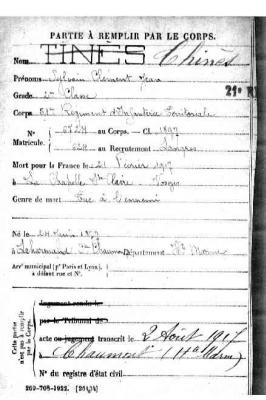 PARTIE À REMPLIR PAR LE CORPS.
TINÈS
Nom Chinès
Prénoms Sylvain Clément Jean
Grade 2e Classe
Corps 51e Régiment d'Infanterie Territoriale
N° 5724 au Corps. — Cl. 1897
Matricule. 524 au Recrutement Langres
Mort pour la France le 21 Février 1917
à La Chapelle Ste Claire Vosges
Genre de mort Tué à l'ennemi
Né le
Département Hte Marne
Arrt municipal (pr Paris et Lyon),
à défaut rue et N°.
Cette partie
n'est pas à remplir
par le Corps.
Jugement rendu le
par le Tribunal de
acte ou jugement transcrit le 2 Août 1917
Chaumont (Hte Marne)
N° du registre d'état civil
269-708-1922. [26434]